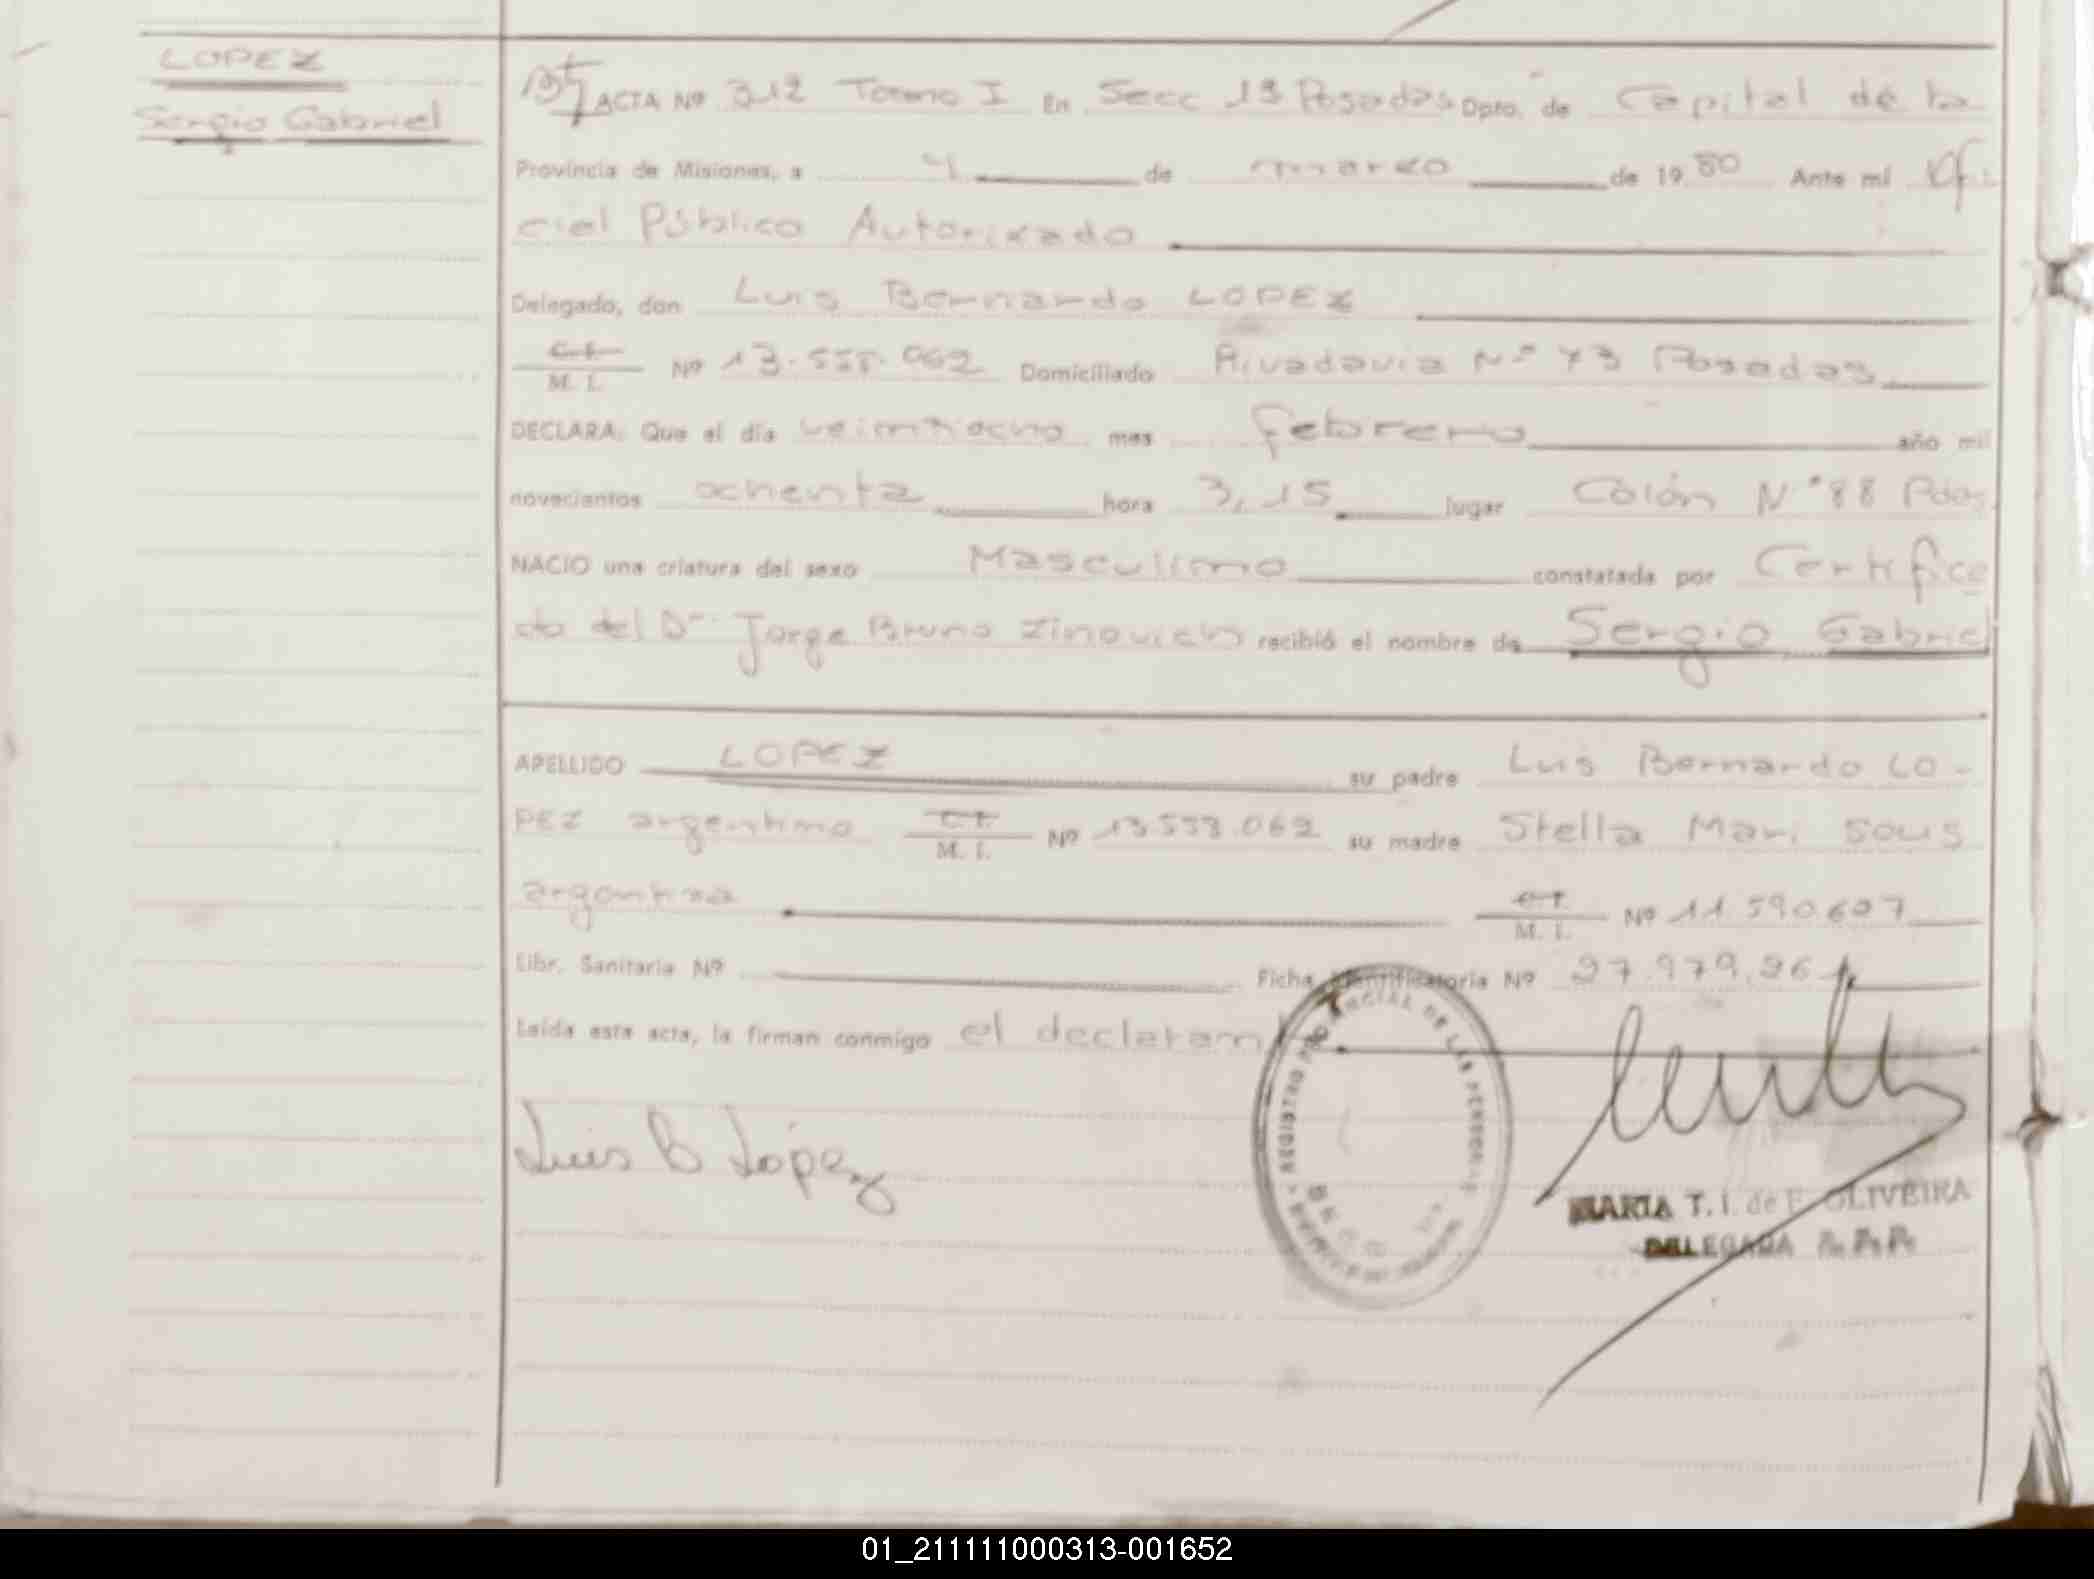 LOPEZ
Sergio Gabriel
ACTA Nº 312 Tomo I En Secc 1ª Posadas Dpto. de Capital de la
Provincia de Misiones, a 4 de marzo de 1980 Ante mí Ofi
cial Público Autorizado
Delegado, don Luis Bernardo LOPEZ
C. I.
M. I. Nº 13.555.062 Domiciliado Rivadavia Nº 73 Posadas
DECLARA: Que el día veintiocho mes febrero año mil
novecientos ochenta hora 3,15 lugar Colón Nº 88 Pdas
NACIO una criatura del sexo Masculino constatada por Certifica
do del Dr. Jorge Bruno Zinovich recibió el nombre de Sergio Gabriel
APELLIDO LOPEZ su padre Luis Bernardo LO-
PEZ argentino C. I.
M. I. Nº 13.553.062 su madre Stella Mari
argentina C. I.
M. I. Nº 11.590.607
Libr. Sanitaria Nº Ficha Identificatoria Nº 27.979.
Leída esta acta, la firman conmigo el declarant
Luis B López
REGISTRO PROVINCIAL DE LAS PERSONAS
MARIA T. I. de F. OLIVEIRA
DELEGADA
01_211111000313-001652